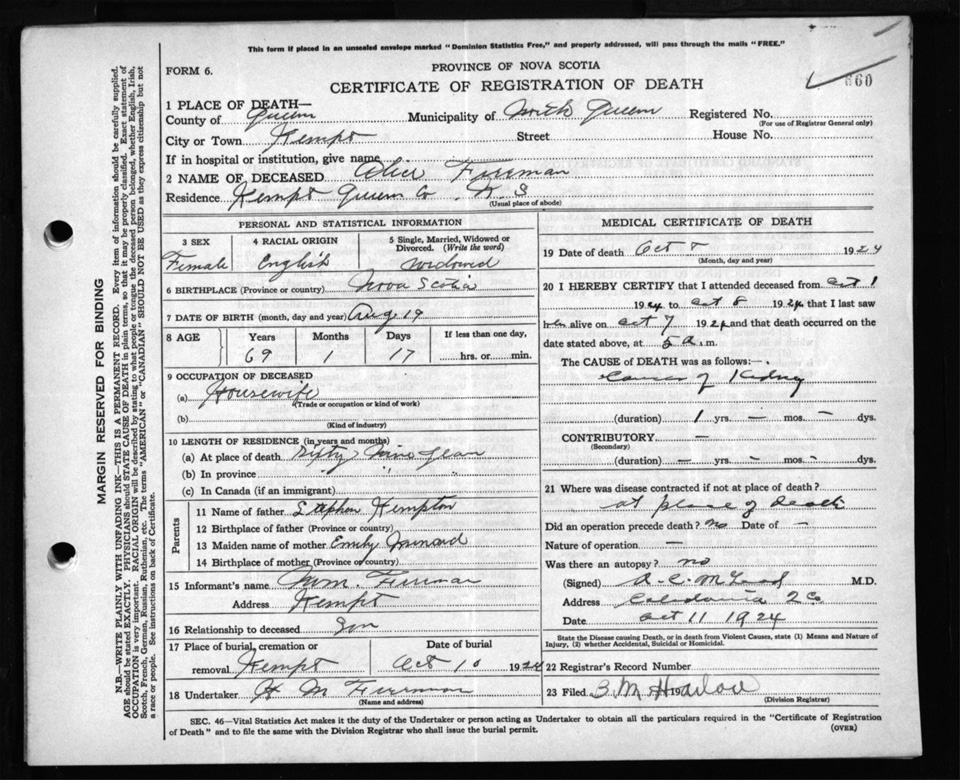 This form if placed in an unsealed envelope marked "Dominion Statistics Free," and properly addressed, will pass through the mails "FREE."
FORM 6.
PROVINCE OF NOVA SCOTIA
CERTIFICATE OF REGISTRATION OF DEATH
660
1 PLACE OF DEATH—
County of Queen Municipality of North Queen Registered No.
(For use of Registrar General only)
City or Town Kempt Street House No.
If in hospital or institution, give name
2 NAME OF DECEASED Alice Freeman
Residence Kempt Queen Co N. S
(Usual place of abode)
PERSONAL AND STATISTICAL INFORMATION
3 SEX 4 RACIAL ORIGIN 5 Single, Married, Widowed or Divorced. (Write the word)
Female English widowed
6 BIRTHPLACE (Province or country) Nova Scotia
7 DATE OF BIRTH (month, day and year) Aug 19
8 AGE Years Months Days If less than one day,
69 1 17 hrs. or min.
9 OCCUPATION OF DECEASED
(a) Housewife
(Trade or occupation or kind of work)
(b)
(Kind of industry)
10 LENGTH OF RESIDENCE (in years and months)
(a) At place of death Sixty Nine Years
(b) In province " " "
(c) In Canada (if an immigrant)
Parents
11 Name of father Stephen Kempton
12 Birthplace of father (Province or country)
13 Maiden name of mother Emily
14 Birthplace of mother (Province or country)
15 Informant's name Wm. Freeman
Address Kempt
16 Relationship to deceased Son
17 Place of burial, cremation or removal Kempt
Date of burial Oct 10 1924
18 Undertaker H M Freeman
(Name and address)
MEDICAL CERTIFICATE OF DEATH
19 Date of death Oct 8 1924
(Month, day and year)
20 I HEREBY CERTIFY that I attended deceased from Oct 1
1924 to Oct 8 1924 that I last saw
her alive on Oct 7 1924 and that death occurred on
date stated above, at 5 a.m.
The CAUSE of DEATH was as follows:—
Cancer of Kidney
(duration) 1 yrs. — mos. — dys.
CONTRIBUTORY —
(Secondary)
(duration) — yrs. — mos. — dys.
21 Where was disease contracted if not at place of death?
at place of death
Did an operation precede death? no Date of —
Nature of operation —
Was there an autopsy? no
(Signed) A. C. McLeod M.D.
Address Caledonia Q Co
Date Oct 11 1924
State the Disease causing Death, or in death from Violent Causes, state (1) Means and Nature of Injury, (2) whether Accidental, Suicidal or Homicidal.
22 Registrar's Record Number
23 Filed 192 M Harlow
(Division Registrar)
SEC. 46—Vital Statistics Act makes it the duty of the Undertaker or person acting as Undertaker to obtain all the particulars required in the "Certificate of Registration
of Death" and to file the same with the Division Registrar who shall issue the burial permit.
(OVER)
MARGIN RESERVED FOR BINDING
N.B.—WRITE PLAINLY WITH UNFADING INK—THIS IS A PERMANENT RECORD. Every item of information should be carefully supplied.
AGE should be stated EXACTLY. PHYSICIANS should STATE CAUSE OF DEATH in plain terms, so that it may be properly classified. Exact statement of
OCCUPATION is very important. RACIAL ORIGIN will be described by stating to what people or tongue the deceased person belonged, whether English, Irish,
Scotch, French, German, Russian, Ruthenian, etc. The terms "AMERICAN" or "CANADIAN" SHOULD NOT BE USED as they express citizenship but not
a race or people. See instructions on back of Certificate.